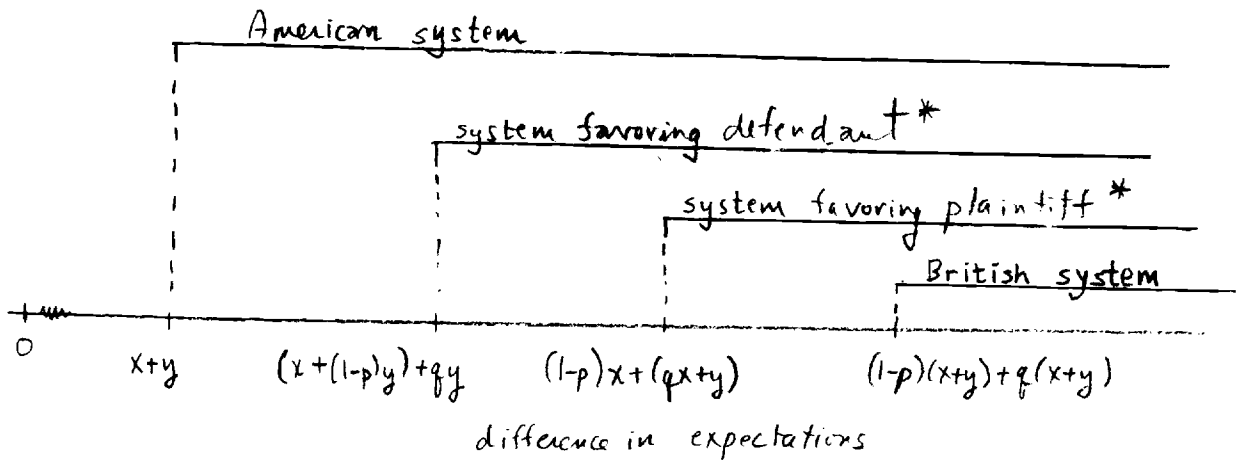 American system
system favoring defendant*
system favoring plaintiff*
British system
0
x+y
(x+(1-p)y)+qy
(1-p)x+(qx+y)
(1-p)(x+y)+q(x+y)
difference in expectations